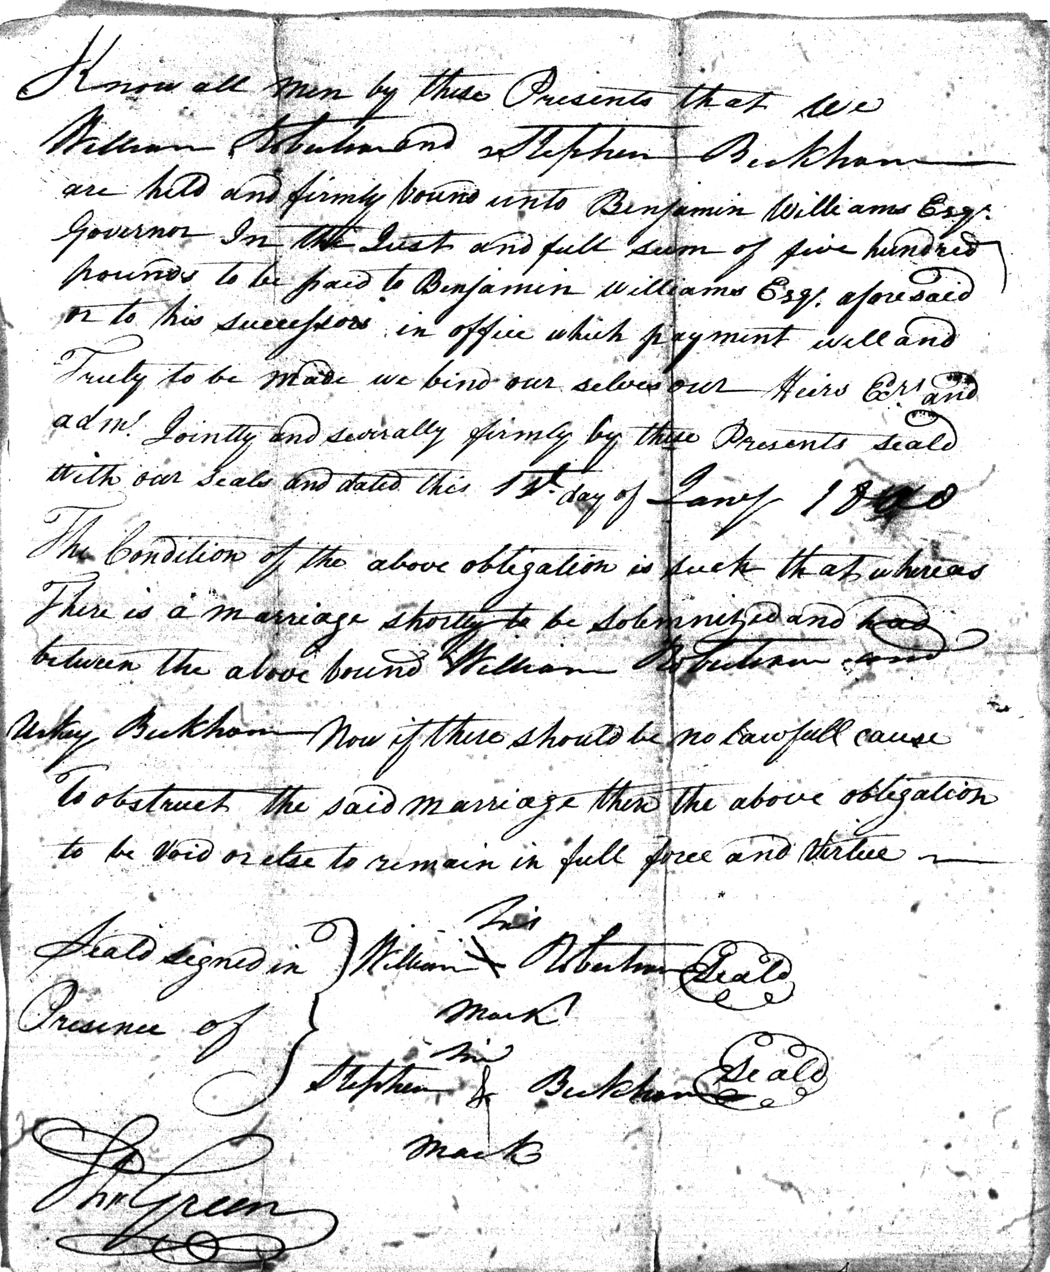 Know all men by these Presents that we
William Robertson and Stephen Beckham
are held and firmly bound unto Benjamin Williams Esqr.
Governor In the Just and full sum of five hundred
pounds to be paid to Benjamin Williams Esqr. aforesaid
or to his successors in office which payment will and
Truly to be made we bind our selves our Heirs Exrs and
admr. Jointly and severally firmly by these Presents seald
With our seals and dated this day of Jany
The Condition of the above obligation is such that whereas
There is a marriage shortly to be solemnized and had
between the above bound William Robertson and
Beckham Now if there should be no lawfull cause
To obstruct the said marriage then the above obligation
to be Void or else to remain in full force and Virtue
his
Seald signed in William X Robertson Seald
Presence of mark
his
Stephen Beckham Seald
mark
Green